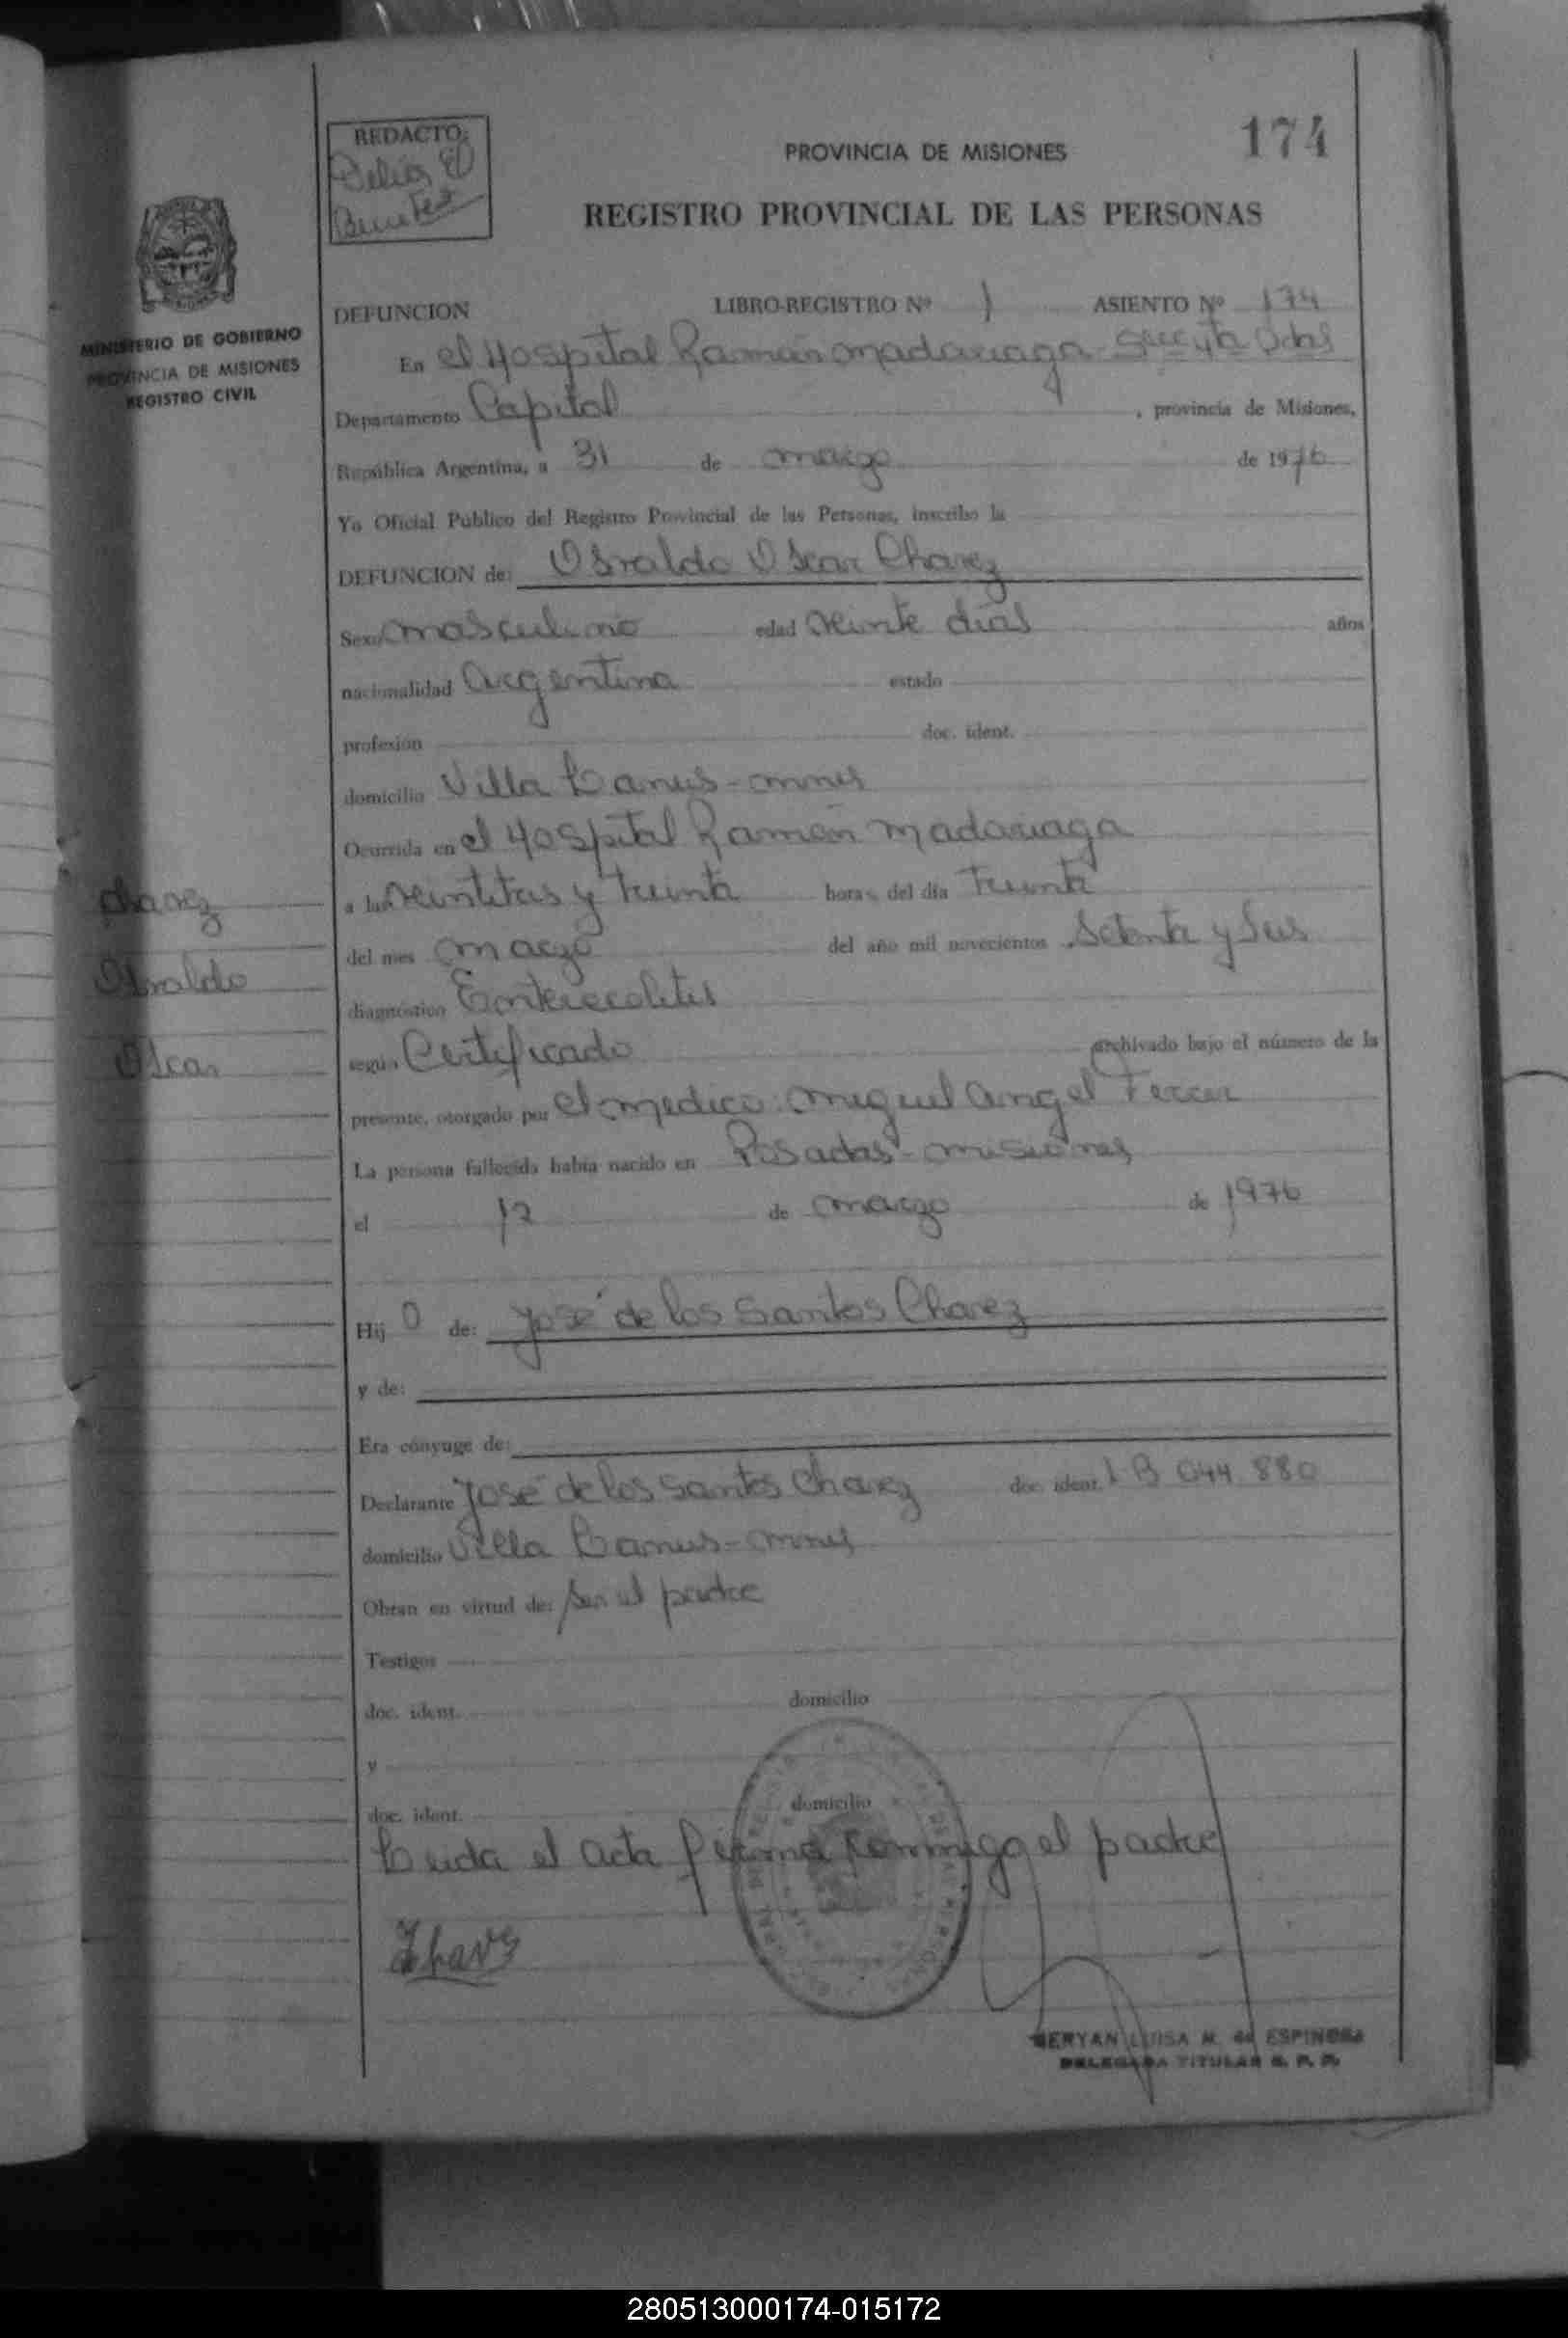 REDACTO:
Delia E
Benitez
174
PROVINCIA DE MISIONES
REGISTRO PROVINCIAL DE LAS PERSONAS
MINISTERIO DE GOBIERNO
PROVINCIA DE MISIONES
REGISTRO CIVIL
DEFUNCION LIBRO-REGISTRO Nº 1 ASIENTO Nº 174
En el Hospital Ramón Madariaga
Departamento Capital , provincia de Misiones,
República Argentina, a 31 de marzo de 1976
Yo Oficial Público del Registro Provincial de las Personas, inscribo la
DEFUNCION de: Osvaldo Oscar Chavez
Sexo masculino edad veinte dias años
nacionalidad Argentina estado
profesión doc. ident.
domicilio Villa Lanus - mnes
Ocurrida en el Hospital Ramón Madariaga
a las veintitres y treinta horas del día treinta
del mes marzo del año mil novecientos setenta y seis
diagnóstico Enterocolitis
según Certificado archivado bajo el número de la
presente, otorgado por el medico: Miguel Angel Ferrer
La persona fallecida había nacido en Posadas - misiones
el 12 de marzo de 1976
Hij o de: José de los Santos Chavez
y de:
Era cónyuge de:
Declarante José de los Santos Chavez doc. ident. L B 044 880
domicilio Villa Lanus - mnes
Obran en virtud de: ser el padre
Testigos
doc. ident. domicilio
y
doc. ident. domicilio
Leida el acta firma conmigo el padre
Chavez
Osvaldo
Oscar
MERYAN LUISA M. de ESPINOSA
DELEGADA TITULAR R. P. P.
280513000174-015172